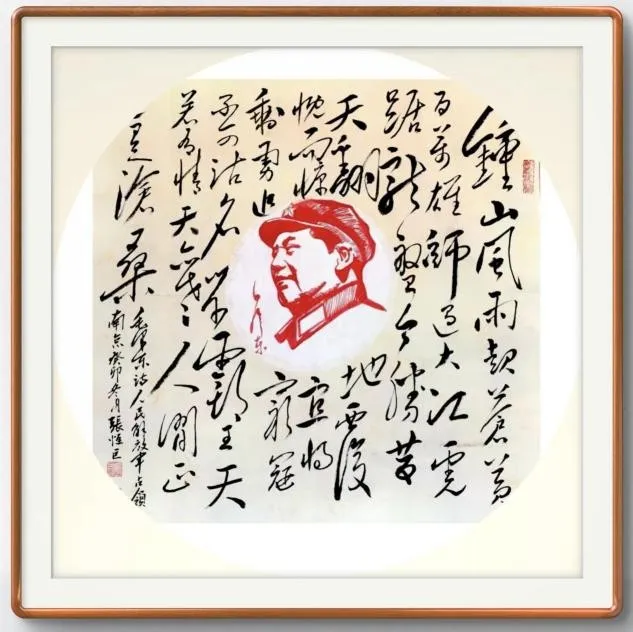 鍾山風雨起蒼黃
百萬雄師過大江虎
踞龍盤今勝昔
天翻地覆
慨而慷宜將
剩勇追窮寇
不可沽名學霸王天
若有情天亦老人間正
道滄桑
毛澤東詩人民解放軍占領
南京癸卯冬月張恒
毛泽东